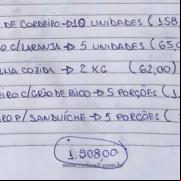 DE CORDEIRO → 10 UNIDADES (158,
O C/LARANJA → 5 UNIDADES (65,0
LHA COZIDA → 2 KG (62,00)
EIRO C/GRÃO DE BICO → 5 PORÇÕES (1
EIRO P/ SANDUÍCHE → 5 PORÇÕES (
1.508,00